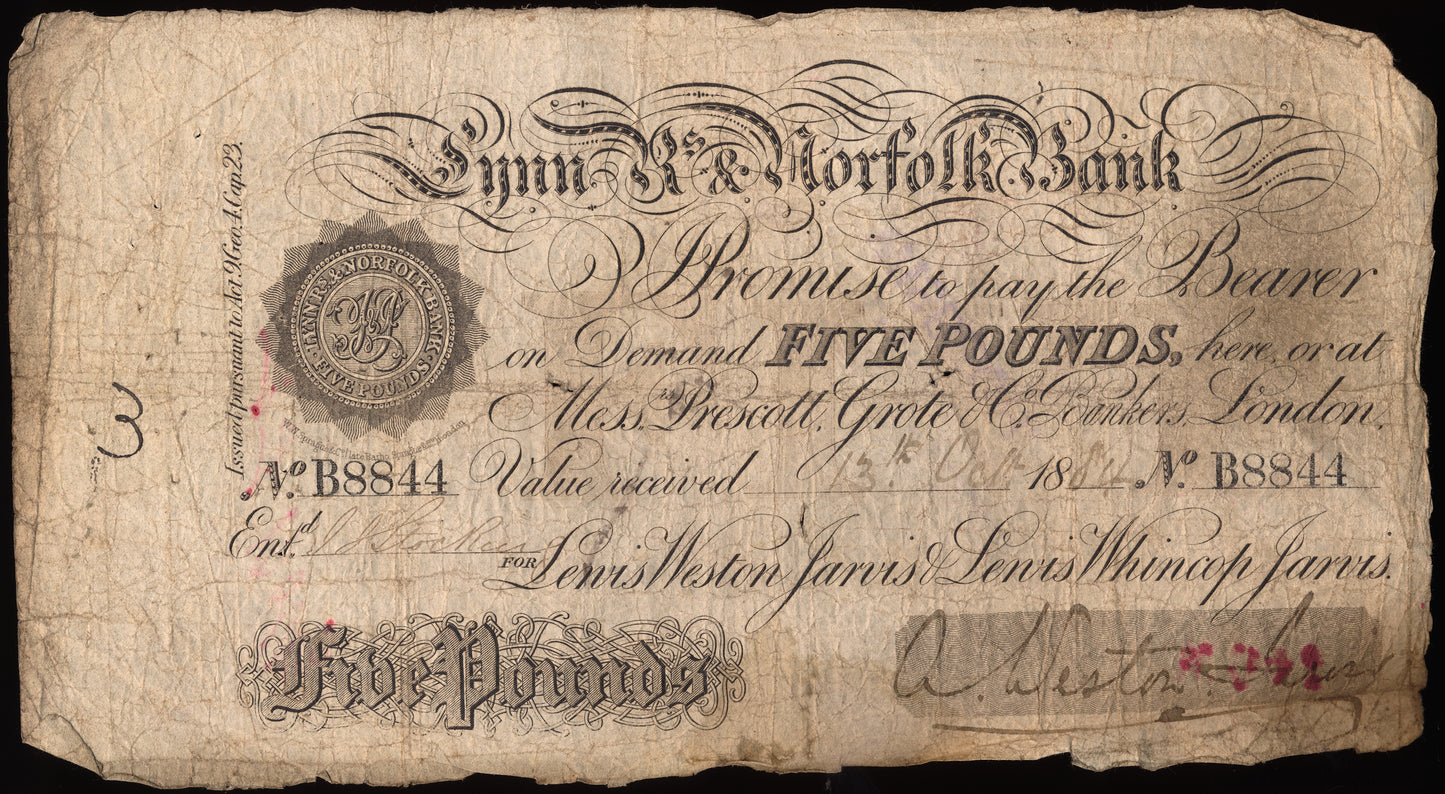 Lynn Rs & Norfolk Bank
Issued pursuant to Act 9 Geo. 4 Cap. 23.
LYNN RS & NORFOLK BANK
FIVE POUNDS
I Promise to pay the Bearer
on Demand FIVE POUNDS, here, or at
Messrs Prescott, Grote & Co. Bankers, London.
No. B8844 Value received 13th Oct 1884 No. B8844
Entd
FOR Lewis Weston Jarvis & Lewis Whincop Jarvis.
Five Pounds
A. Weston Jarvis
3